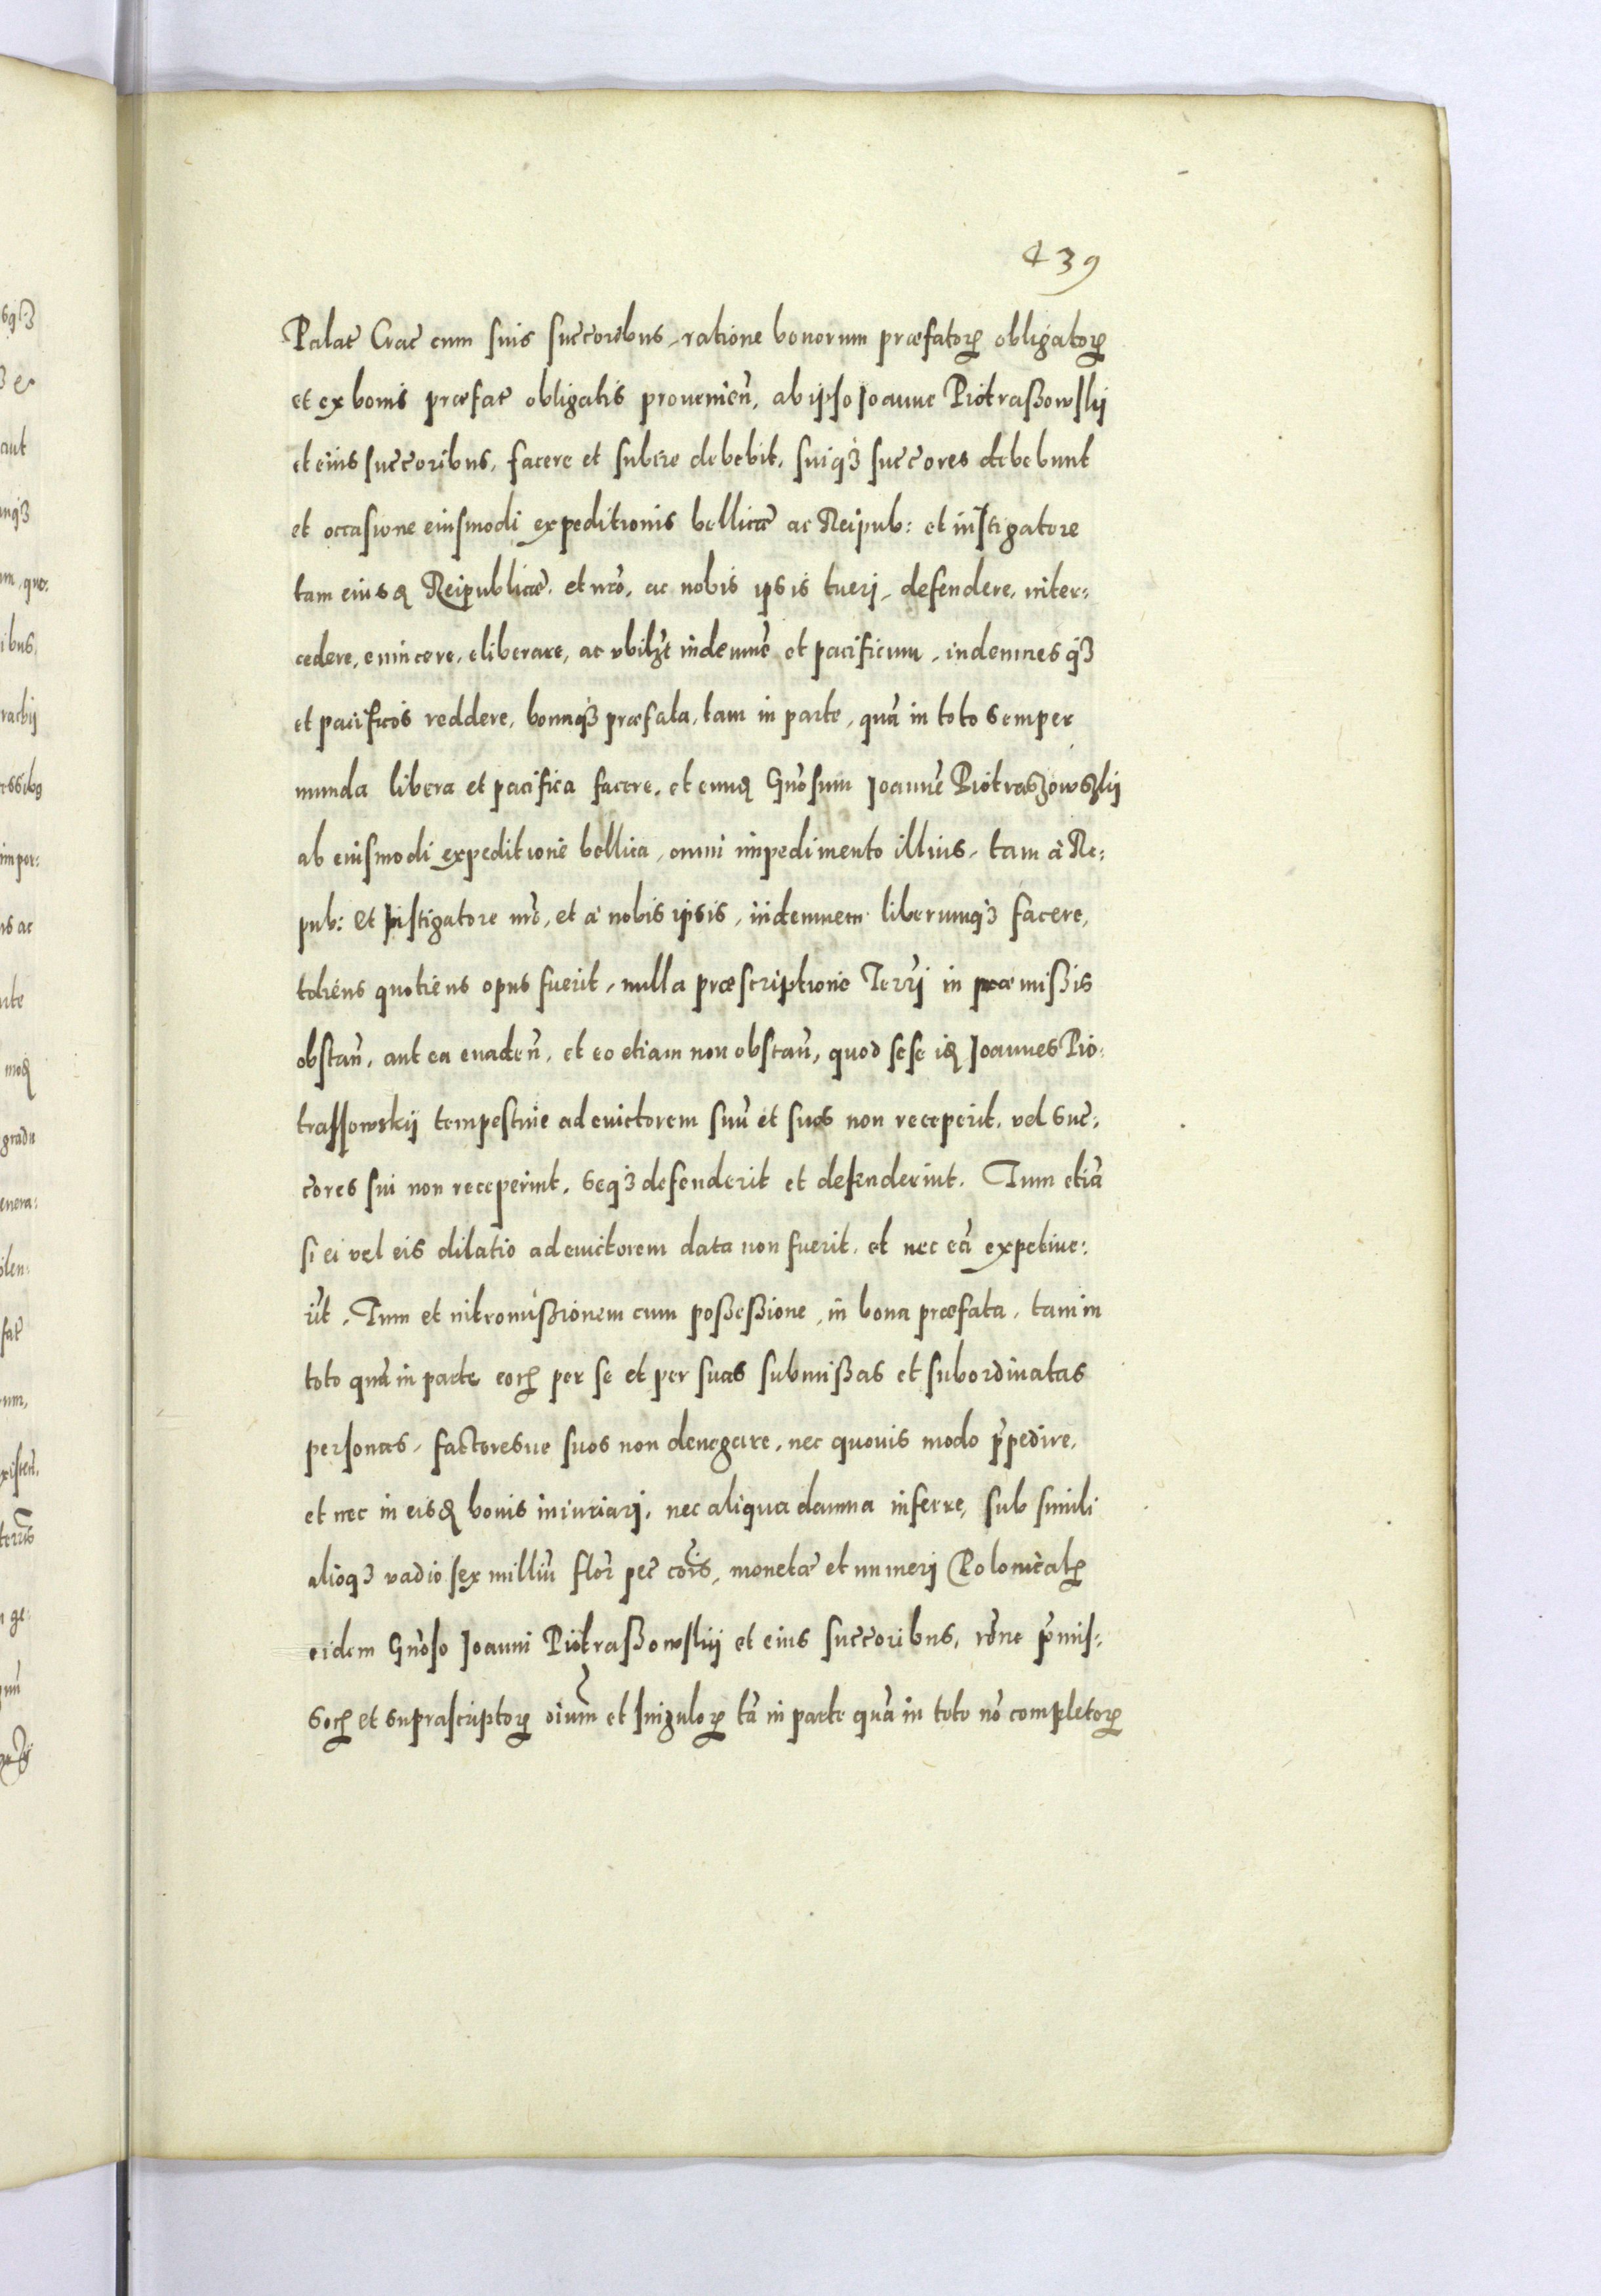 439
Palat Crac cum suis succoribus, ratione bonorum præfatoꝝ obligatoꝝ
et ex bonis præfat obligatis prouenieñ, ab ipso Joanne Piotraßowskij
et eius succoribus, facere et subire debebit, suiqꝫ succores debebunt
et occasione eiusmodi expeditionis bellicæ ac Reipub: et instigatore
tam eiusđ Reipublicæ, et nrõ, ac nobis ipsis tueri, defendere, inter:
cedere, euincere, eliberare, ac vbilꝫt indemnẽ et pacificum, indemnesqꝫ
et pacificos reddere, bonaqꝫ præfata, tam in parte, quã in toto semper
munda libera et pacifica facere, et eunđ Gñosum Joannẽ Piotraszowszkij
ab eiusmodi expeditione bellica, omni impedimento illius, tam à Re:
pub: et instigatore nrõ, et à nobis ipsis, indemnem liberumqꝫ facere,
totiens quotiens opus fuerit, nulla præscriptione Terrj in præmißis
obstañ, aut ea euadeñ, et eo etiam non obstañ, quod sese iđ Joannes Pio:
trassowskij tempestiue ad euictorem suũ et suos non receperit, vel suc:
cores sui non receperint, seqꝫ defenderit et defenderint. Tum etiã
si ei vel eis dilatio ad euictorem data non fuerit, et nec eã expetiue:
rĩt. Tum et intromißionem cum poßeßione, in bona præfata, tam in
toto quã in parte eoꝝ per se et per suas submißas et subordinatas
personas, factoresue suos non denegare, nec quouis modo p̃pedire,
et nec in eisđ bonis iniuriarj, nec aliqua damna inferre, sub simili
alioqꝫ vadio sex milliũ flor̃ pec̃ cõis, monetæ et numerj Polonicalꝝ
eidem Gñoso Joanni Piotraßowskij et eius succoribus, rõne p̃mis:
soꝝ et suprascriptoꝝ oĩum et singuloꝝ tã in parte quã in toto nõ completoꝝ